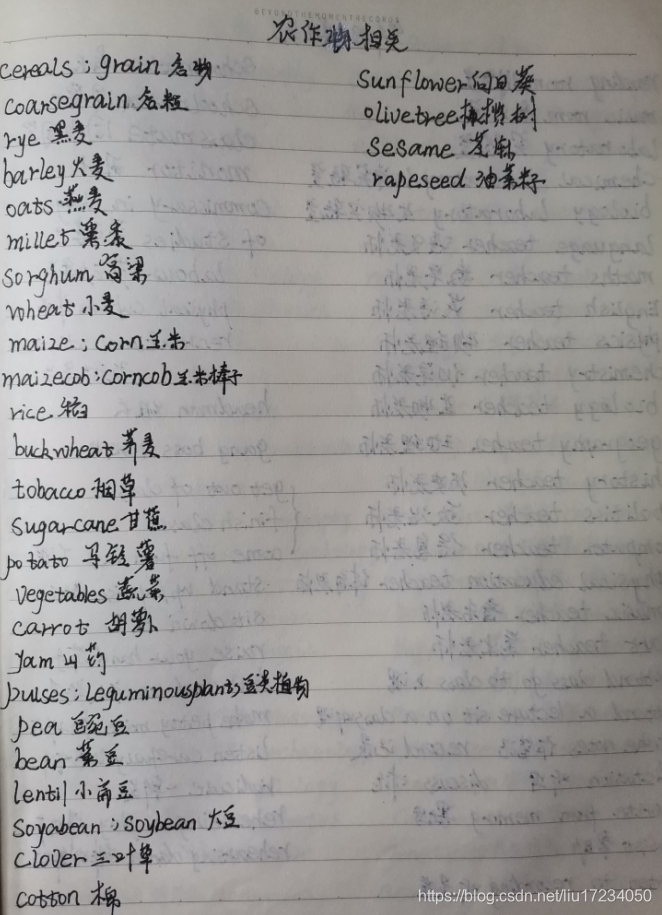 BEYONDTHEMOMENTRECORDS
农作物相关
cereals; grain 谷物
coarsegrain 谷粒
rye 黑麦
barley 大麦
oats 燕麦
millet
sorghum 高粱
wheat 小麦
maize; corn 玉米
maizecob; corncob 玉米棒子
rice 稻
buckwheat 荞麦
tobacco 烟草
sugarcane 甘蔗
potato 马铃薯
vegetables 蔬菜
carrot 胡萝卜
yam 山药
pulses; leguminousplants 豆类植物
pea 豌豆
bean 蚕豆
lentil 小扁豆
soyabean; soybean 大豆
clover 三叶草
cotton 棉
sunflower 向日葵
olivetree 橄榄树
sesame 芝麻
rapeseed 油菜籽
https://blog.csdn.net/liu17234050